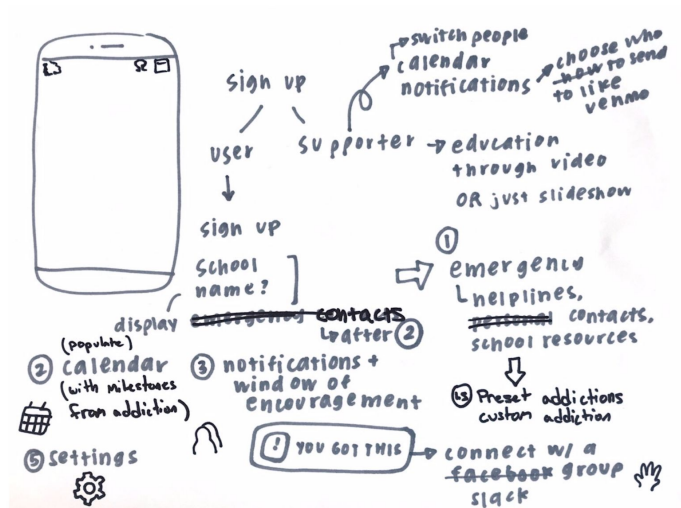 sign up
user
supporter
switch people
calendar
notifications
choose who
how to send
to like
venmo
education
through video
OR just slideshow
sign up
school
name?
display
(populate)
emergency contacts
after ②
①
emergency
helplines,
personal contacts,
school resources
② calendar
(with milestones
from addiction)
③ notifications +
window of
encouragement
Preset addictions
custom addiction
⑤ settings
! YOU GOT THIS
connect w/ a
facebook group
slack